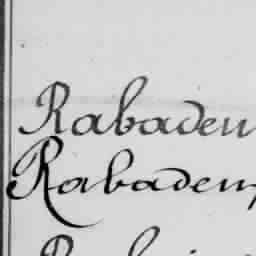 Rabaden
Rabadem